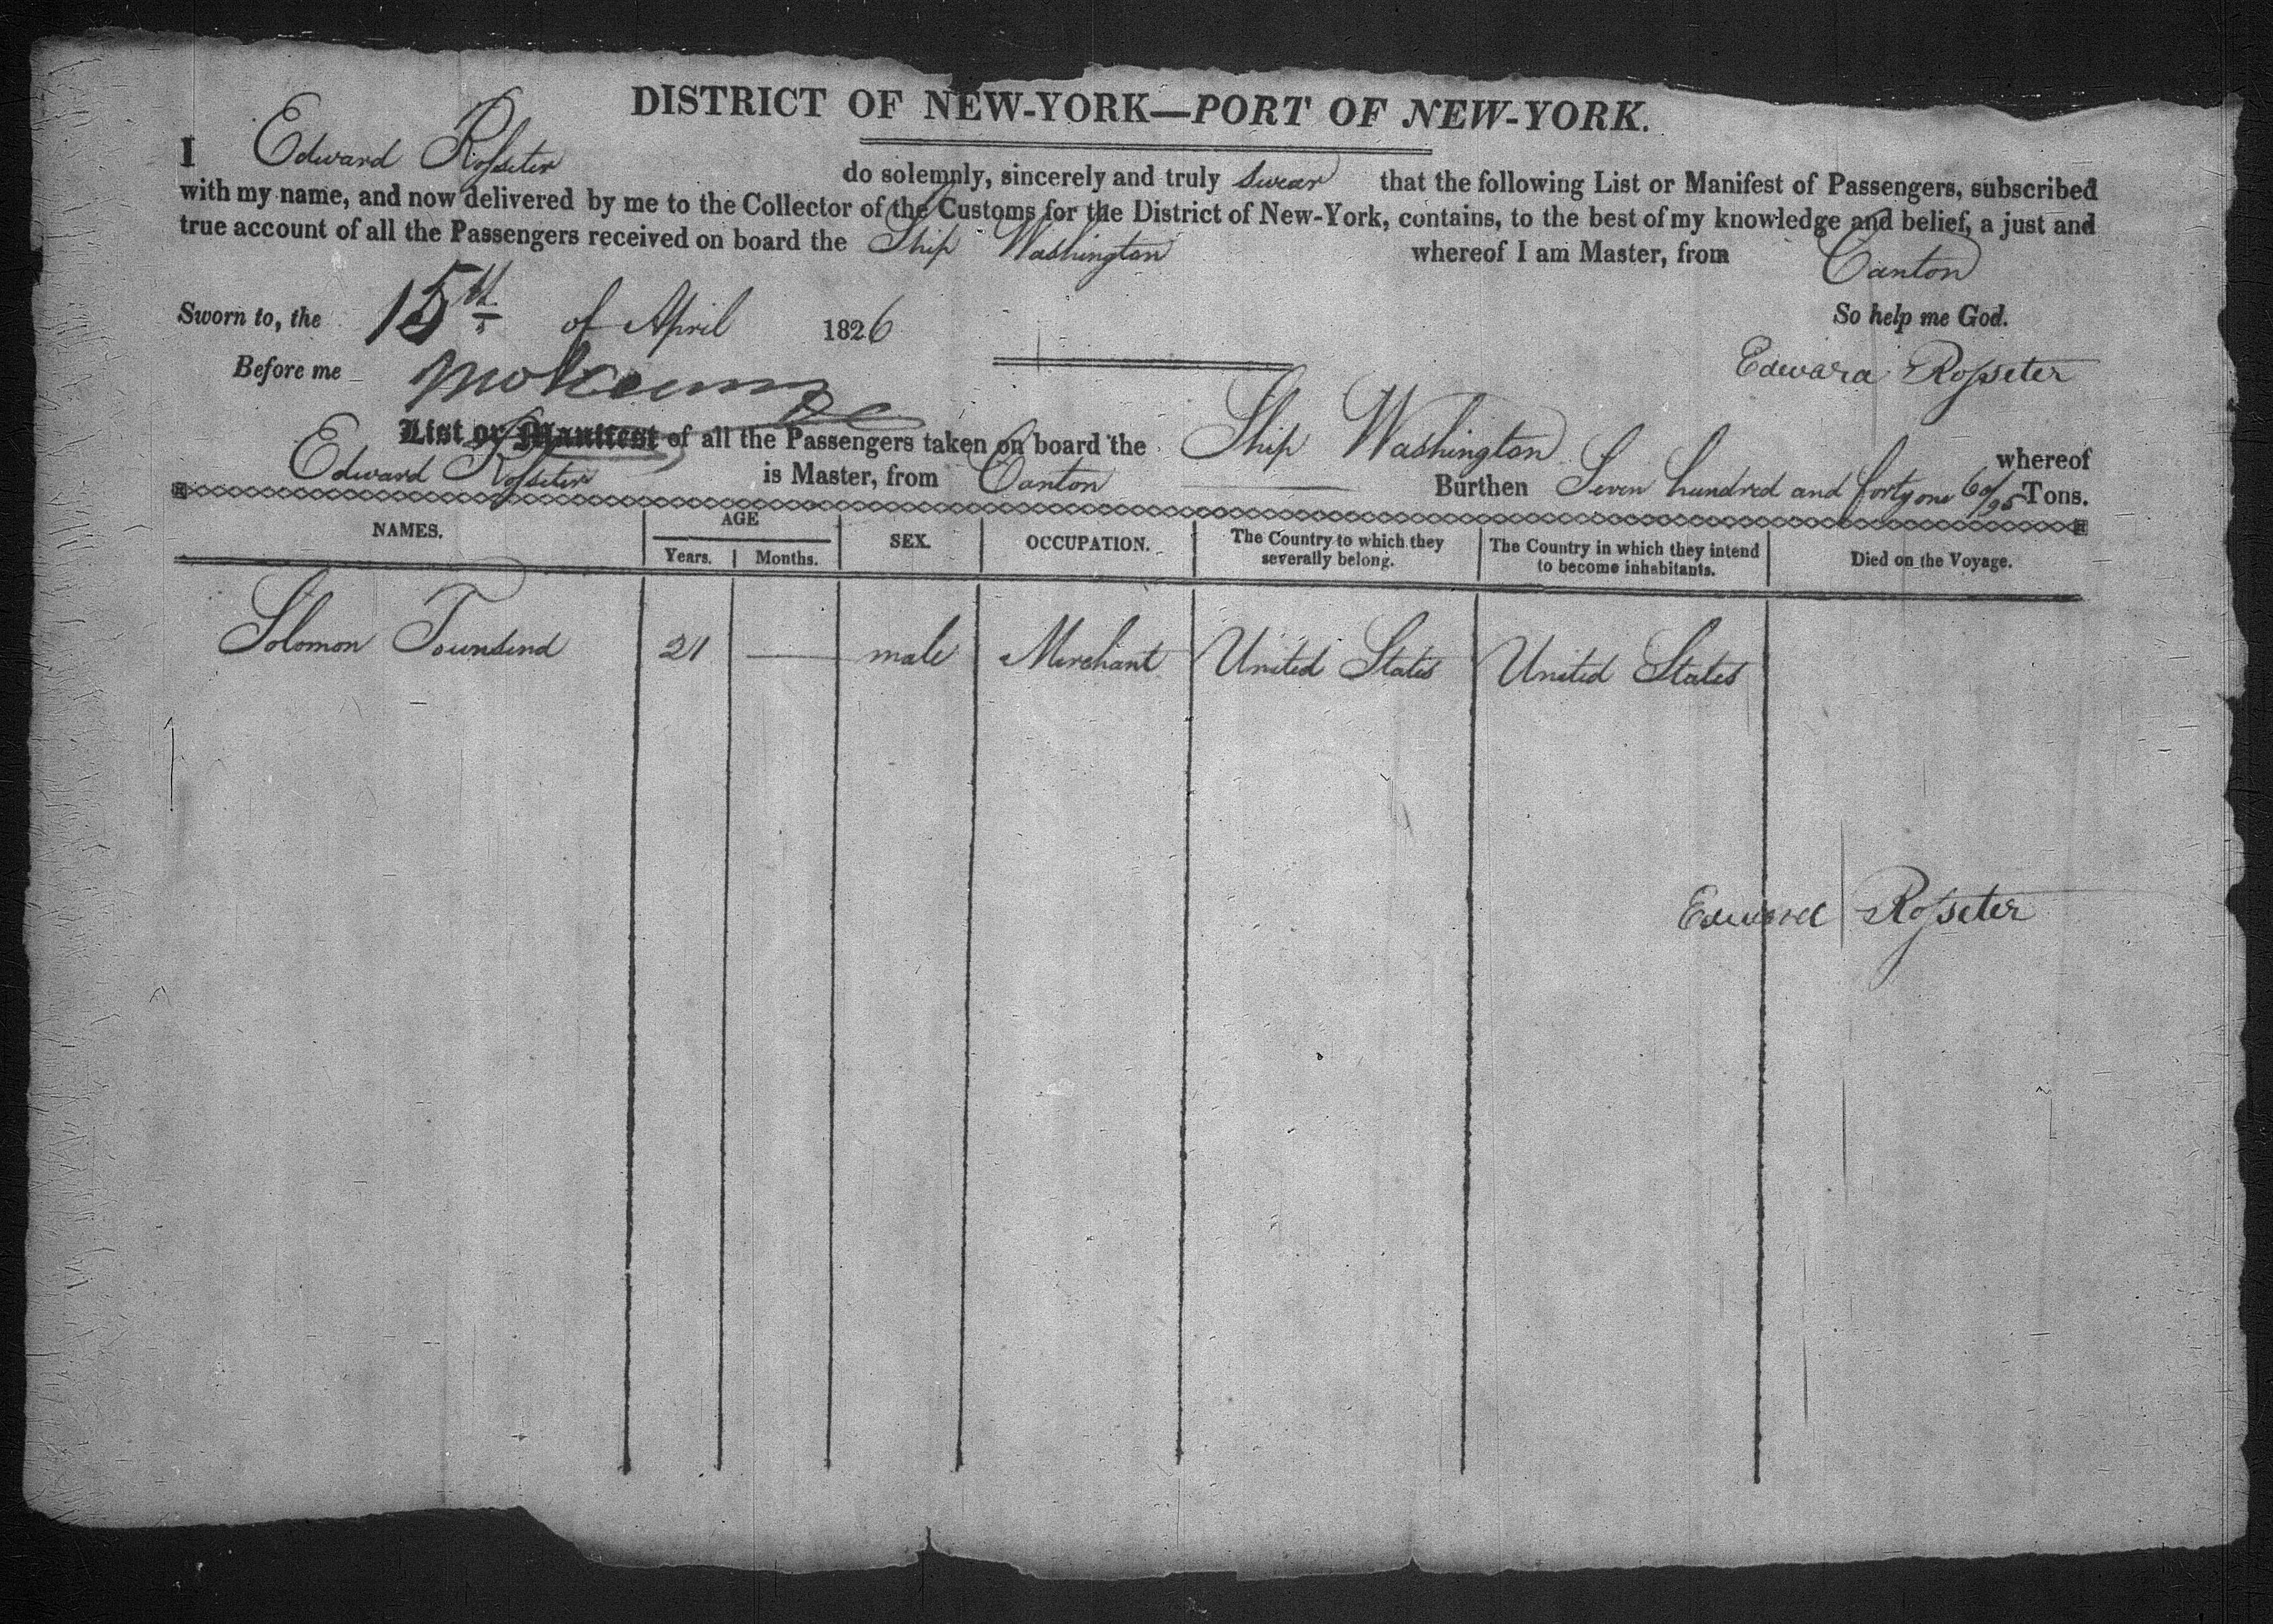 DISTRICT OF NEW-YORK—PORT OF NEW-YORK.
I Edward Rosseter do solemnly, sincerely and truly swear that the following List or Manifest of Passengers, subscribed
with my name, and now delivered by me to the Collector of the Customs for the District of New-York, contains, to the best of my knowledge and belief, a just and
true account of all the Passengers received on board the Ship Washington whereof I am Master, from Canton
Sworn to, the 15th of April 1826 So help me God.
Before me Edward Rosseter
List or Manifest of all the Passengers taken on board the Ship Washington whereof
Edward Rosseter is Master, from Canton Burthen Seven hundred and forty one 60/95 Tons.
NAMES. AGE Years. Months. SEX. OCCUPATION. The Country to which they severally belong. The Country in which they intend to become inhabitants. Died on the Voyage.
Solomon Townsend 21 — male Merchant United States United States
Edward Rosseter